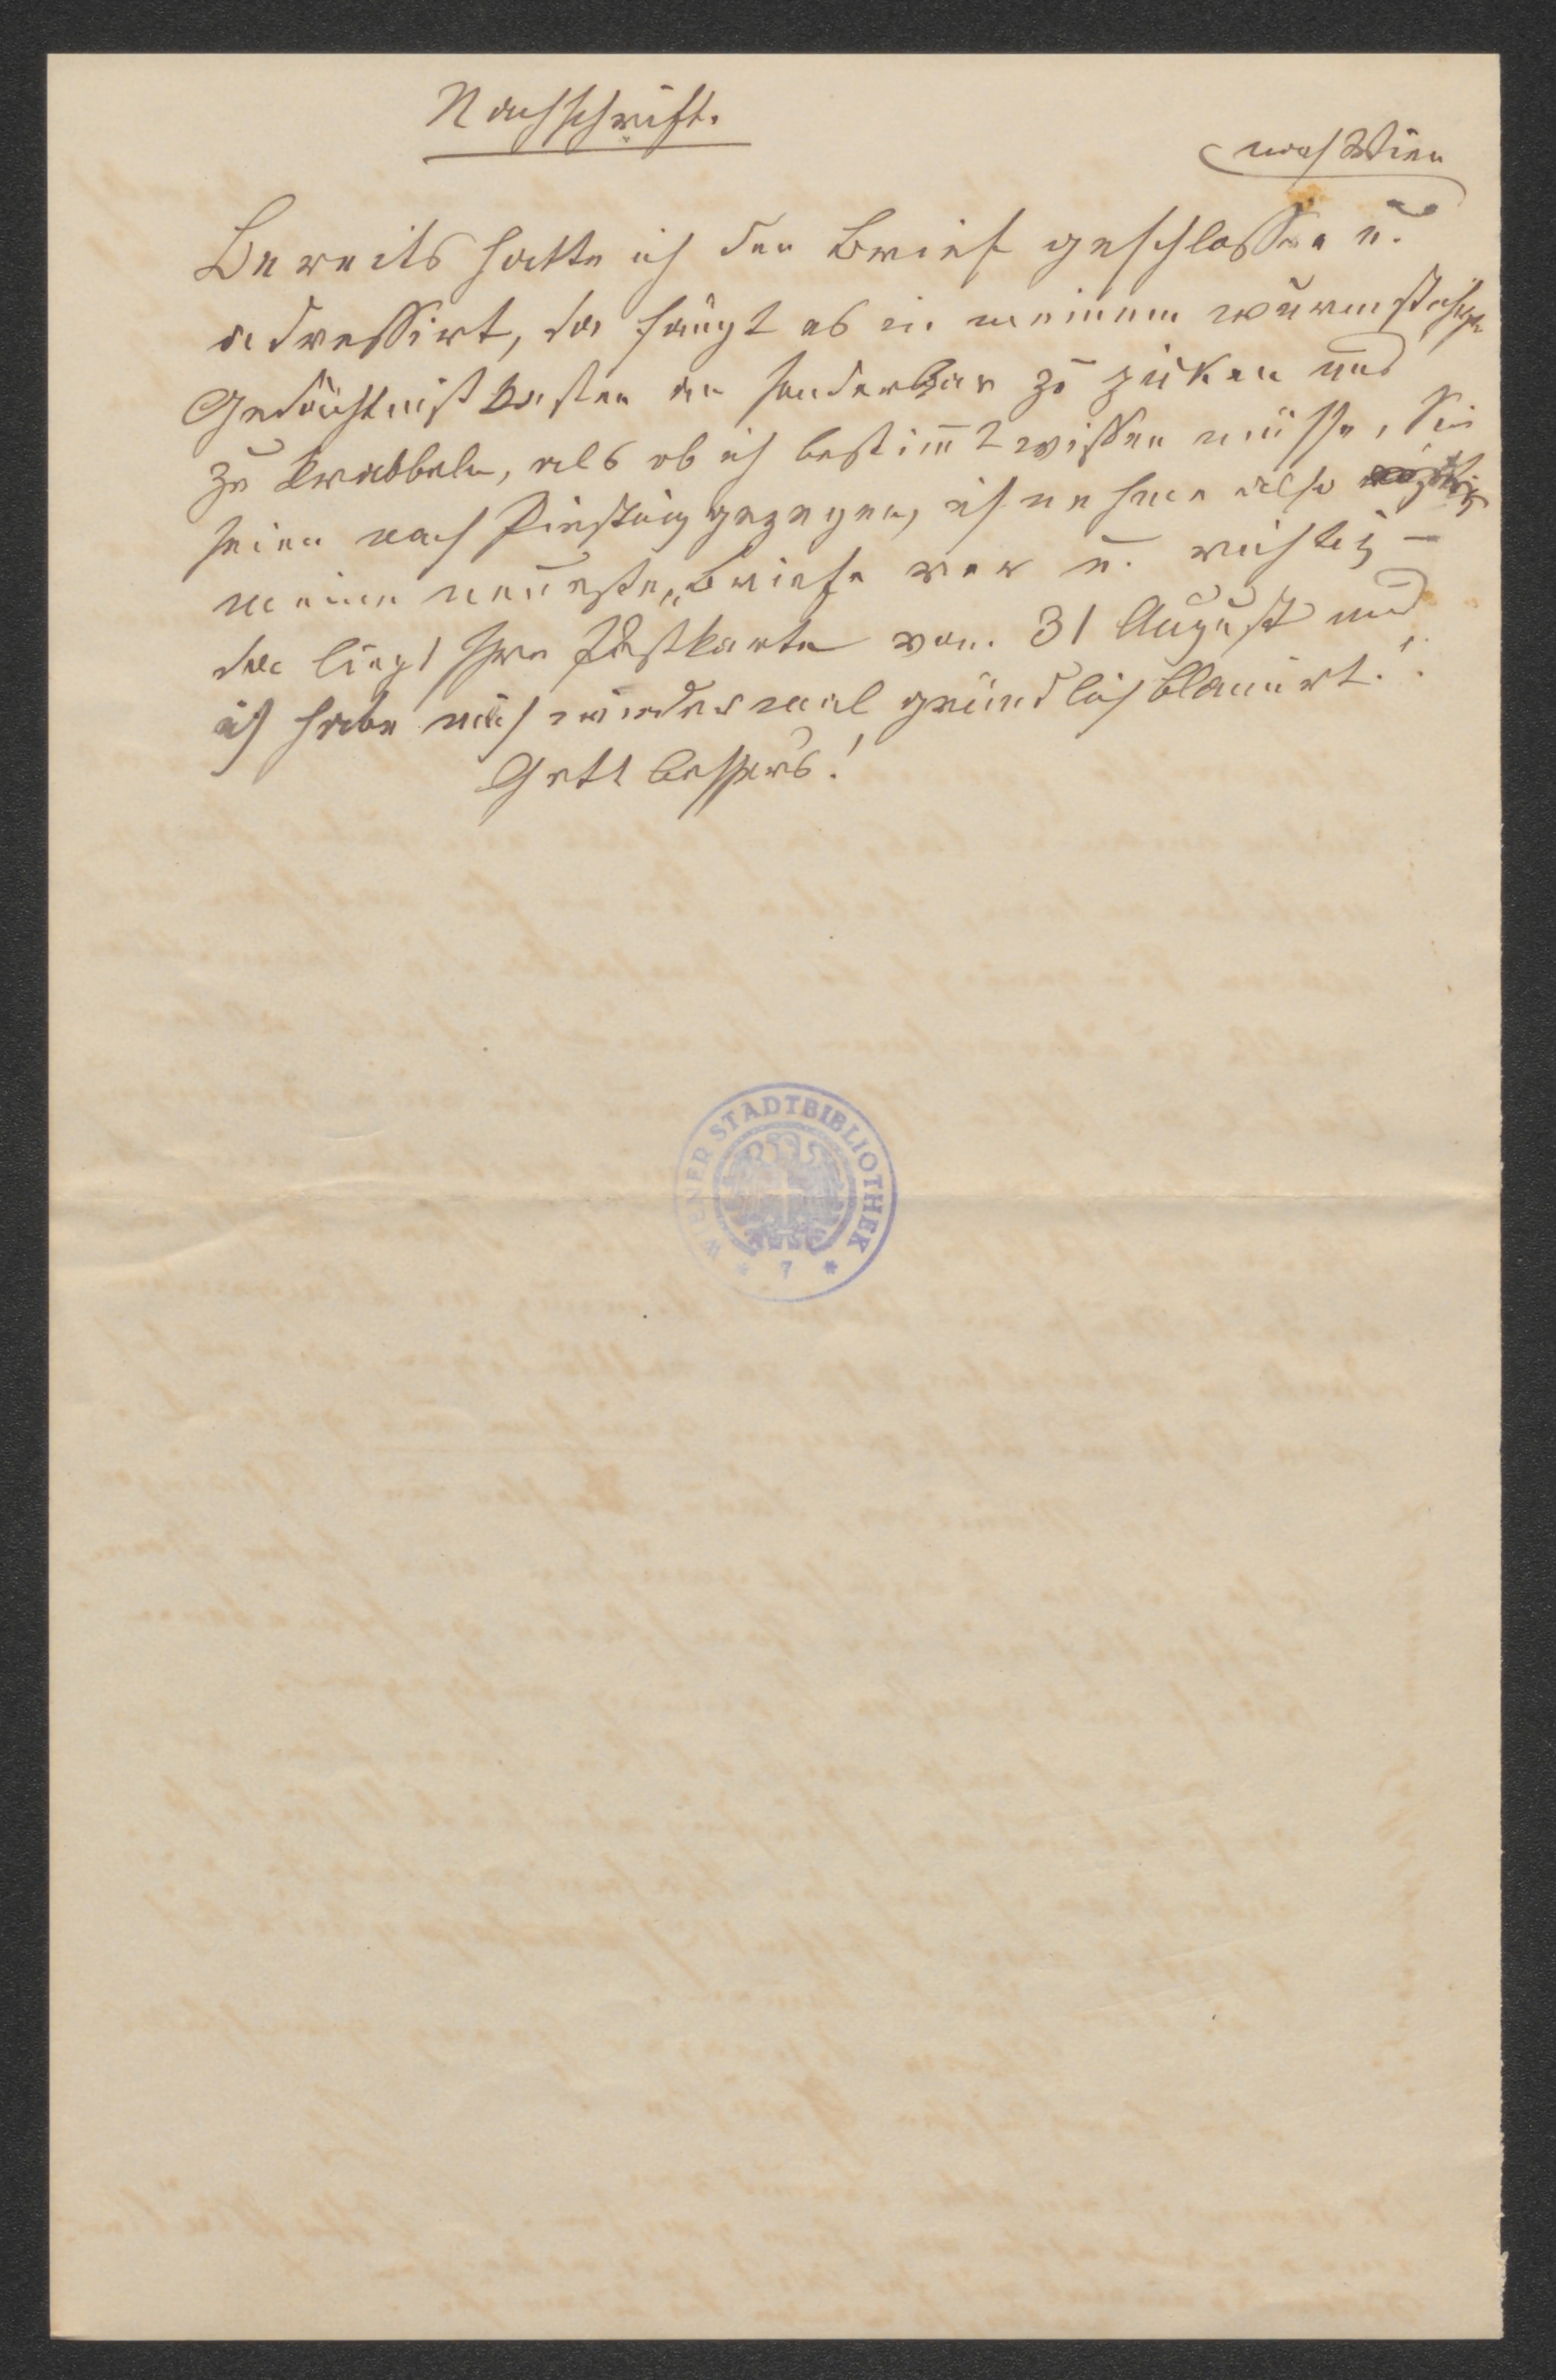 Nachschrift.
nach Wien
Bereits hatte ich den Brief geschlossen u.
adressirt, da fängt es in meinem wurmstichigen
Gedächtnißkasten an sonderbar zu zucken und
zu krabbeln, als ob ich bestim̅t wissen müsse, Sie
seien nach Piesting gezogen, ich nehme also
meine neuesten Briefe vor u. richtig –
da liegt Ihre Postkarte vom 31 August und
ich habe mich wieder mal gründlich blamirt!
Gott besser's!
WIENER STADTBIBLIOTHEK
* 7 *